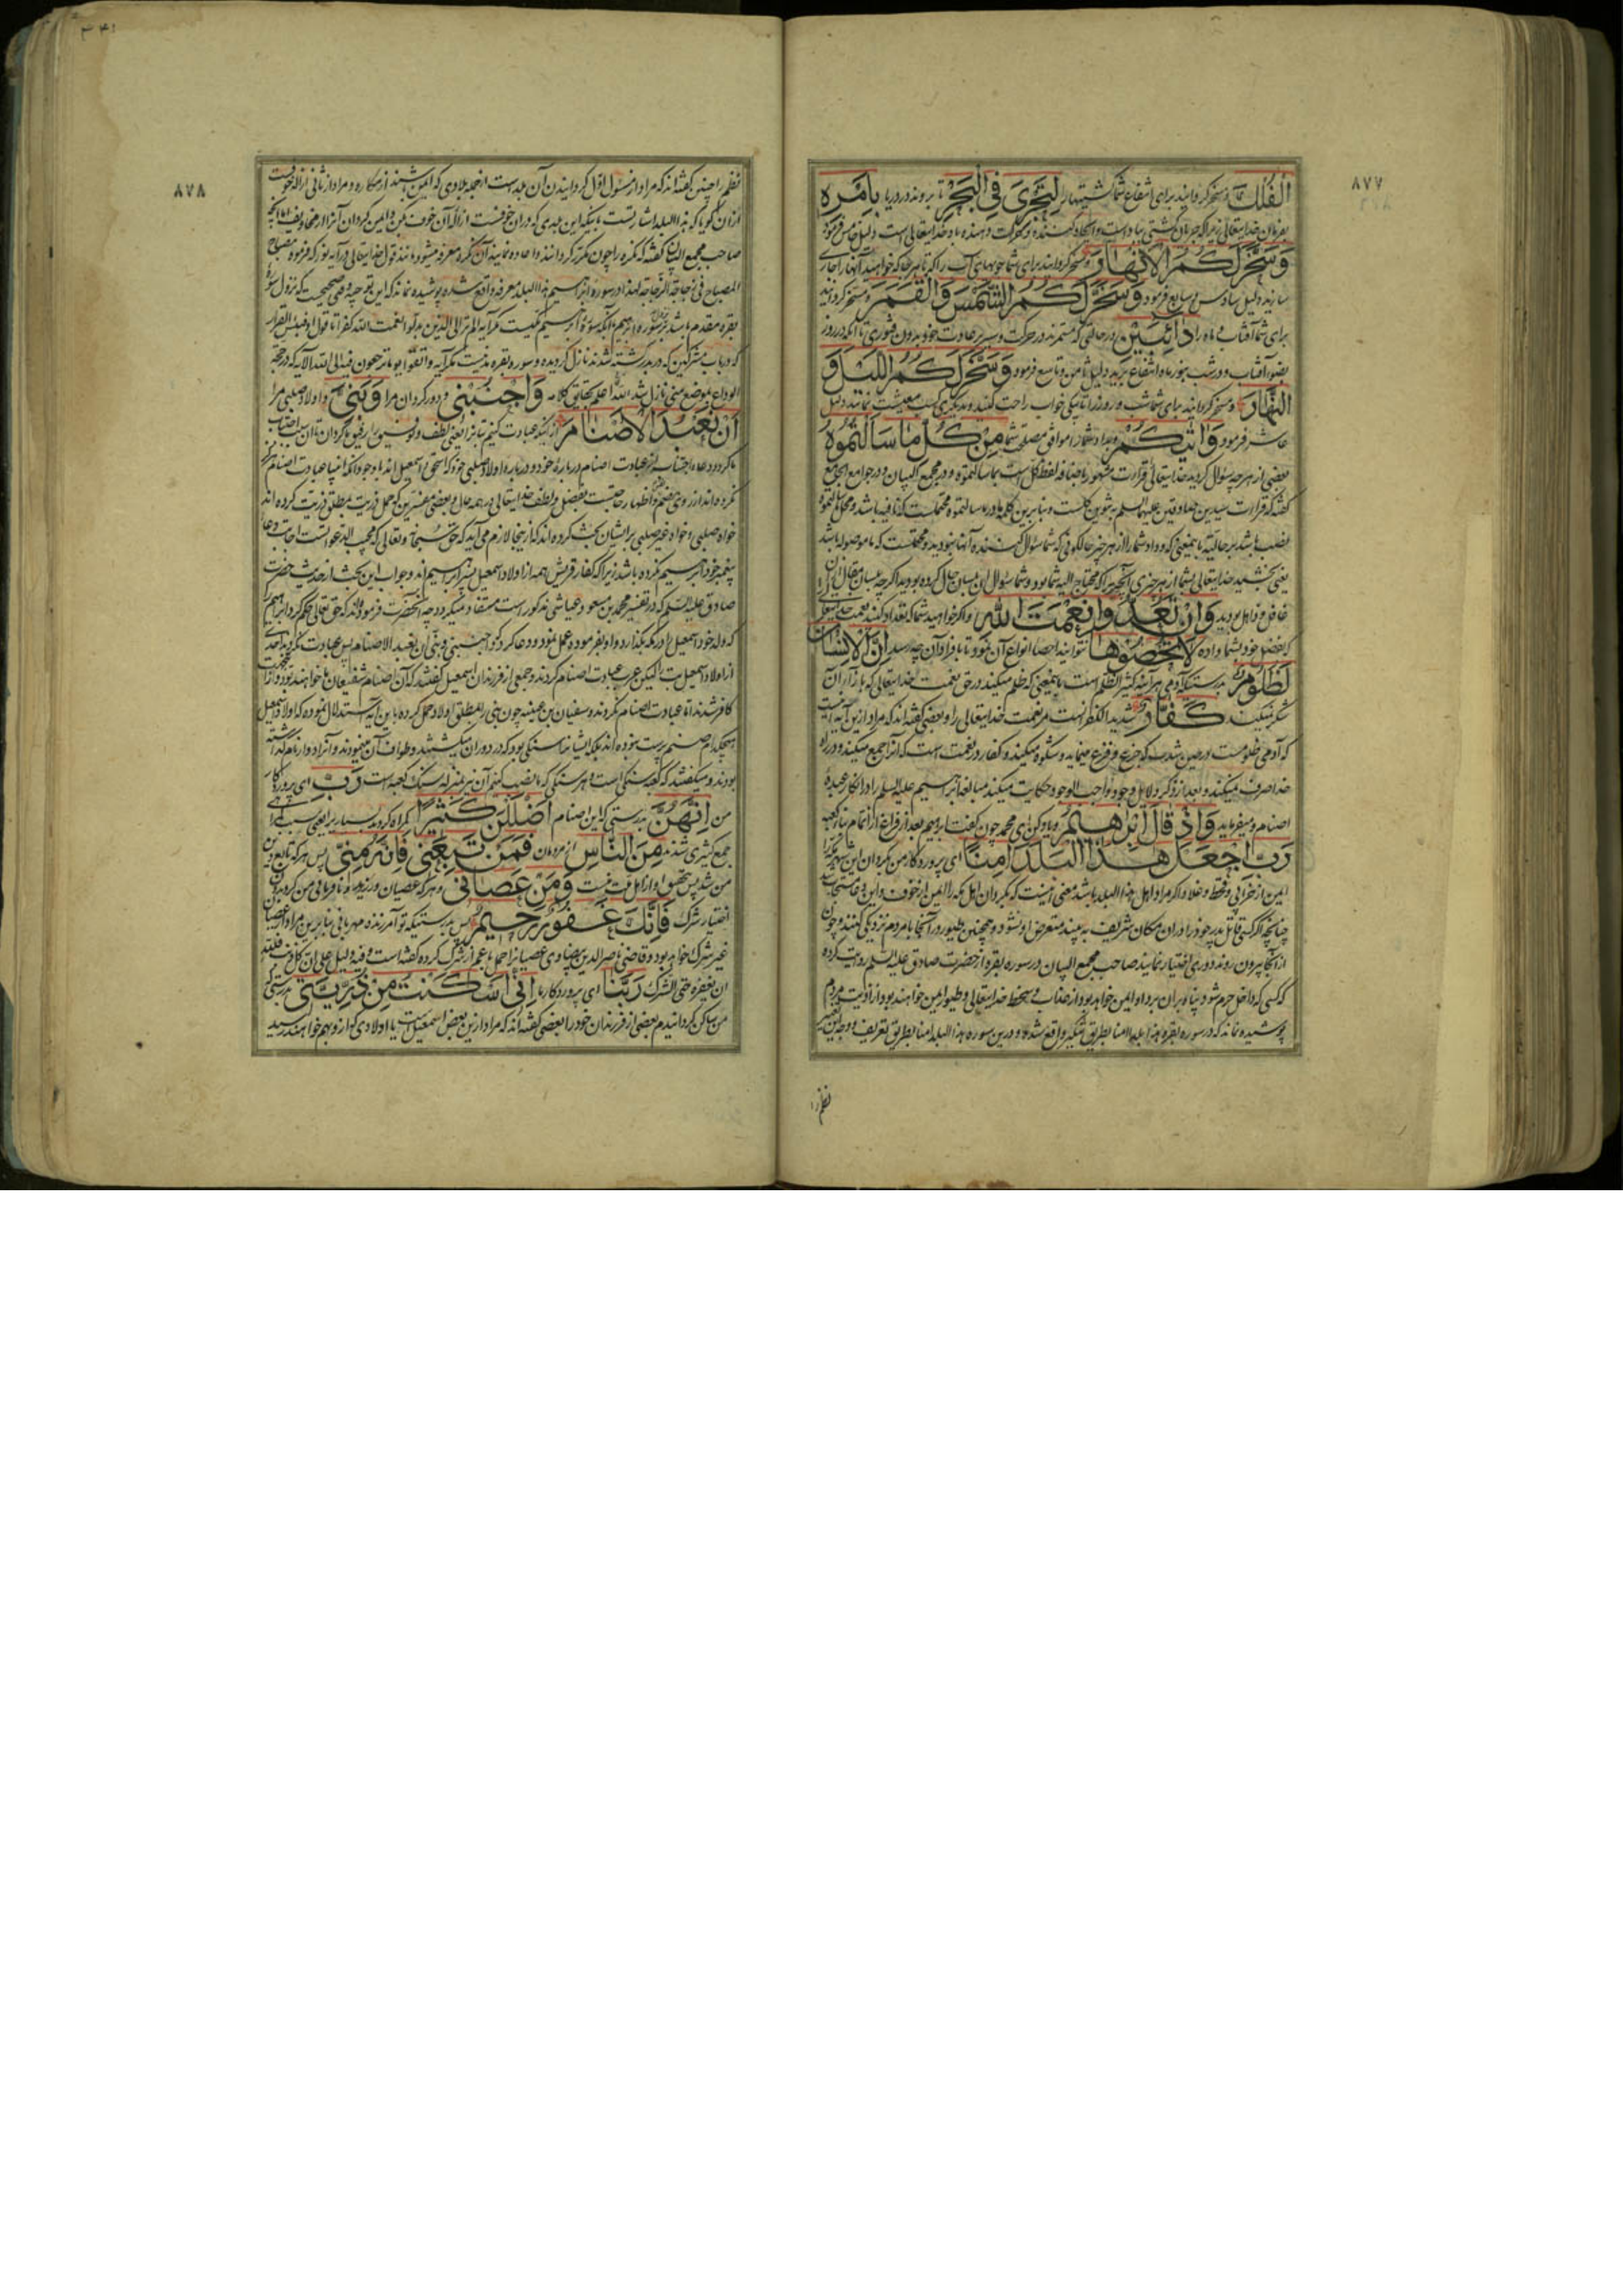 ۸۷۷
الْفُلْكَ و مسخر گردانید برای انتفاع شما کشتیها را لِتَجْرِیَ فِی الْبَحْرِ تا بروند در دریا بِاَمْرِهِ
بفرمان خدایتعالی زیرا که جریان کشتی بباد است و ایجاد کننده و حرکت دهنده باد خدایتعالی است دلیل خامس فرمود
وَسَخَّرَ لَكُمُ الْاَنْهَارَ و مسخر گردانید برای شما جویهای آب را که تا هر جا که خواهید آنها را جاری
سازید دلیل سادس و سابع فرمود وَسَخَّرَ لَكُمُ الشَّمْسَ وَالْقَمَرَ و مسخر گردانید
برای شما آفتاب و ماه را دَائِبَیْنِ در حالتی که مستمرند در حرکت و سیر بر عادت خود بدون فتوری تا آنکه در روز
بضوء آفتاب و در شب بنور ماه انتفاع برید دلیل ثامن و تاسع فرمود وَسَخَّرَ لَكُمُ اللَّیْلَ وَ
النَّهَارَ و مسخر گردانید برای شما شب و روز را تا یکی خواب راحت کنید و بدیگری کسب معیشت نمائید دلیل
عاشر فرمود وَاٰتٰیكُمْ و بداد شما را موافق مصلحت شما مِنْ كُلِّ مَا سَاَلْتُمُوهُ
بعضی از هر چه سؤال کردید خدایتعالی قرارت مشهور باضافه لفظ کل است بما سالتموه و در مجمع البیان و در جوامع الجامع
غافل و ذاهل بودید وَاِنْ تَعُدُّوا نِعْمَتَ اللّٰهِ و اگر خواهید شما که تعداد کنید نعمت خدایتعالی
که بفضل خود بشما داده لَا تُحْصُوهَا نتوانید احصا انواع آن نمود تا بافراد آن چه رسد اِنَّ الْاِنْسَانَ
لَظَلُومٌ بدرستیکه آدمی هر آینه کثیر الظلم است باینمعنی که ظلم میکند در حق نعمت خدایتعالی که بازاء آن
شکر نمیکند كَفَّارٌ شدید الکفران است مر نعمت خدایتعالی را و بعضی گفته اند که مراد ازین آیه اینست
که آدمی ظلوم است در حین شدت که جزع و فزع مینماید و شکوه میکند و کفار در نعمت است که آنرا جمع میکند و در راه
خدا صرف نمیکند و بعد از ذکر دلایل وجود واجب الوجود حکایت میکند مبالغه ابراهیم علیه السلم را در انکار عبدهٔ
اصنام و میفرماید وَاِذْ قَالَ اِبْرٰهِیمُ و یاد کن ای محمد چون گفت ابراهیم بعد از فراغ از اتمام بناء کعبه
رَبِّ اجْعَلْ هٰذَا الْبَلَدَ اٰمِنًا ای پروردگار من گردان این شهر مکه را
ایمن از خرابی و قحط و غلا و اگر مراد اهل هذا البلد باشد معنی اینست که بگردان اهل مکه را ایمن از خوف و این دعا مستجاب شد
چنانچه اگر کسی قاتل پدر خود را در آن مکان شریف به بیند متعرض او نشود و همچنین طیور در آنجا با مردم نزدیکی کنند و چون
از آنجا بیرون روند دوری اختیار نمایند صاحب مجمع البیان در سوره بقره از حضرت صادق علیه السلم روایت کرده
که کسی که داخل حرم شود و پناه بر آن برد او ایمن خواهد بود از عذاب و سخط خدایتعالی و طیور ایمن خواهند بود از اذیت مردم
پوشیده نماند که در سوره بقره هذا بلدا امنا بطریق تنکیر واقع شده و درین سوره هذا البلد امنا بطریق تعریف و وجه این تغییر
نظم را
۳۴۱
۸۷۸
نظم را چنین گفته اند که مراد از سئول اول گردانیدن آن بلد است از جمله بلادی که ایمن باشند از مکاره و مراد از ثانی ازاله خوفست
صاحب مجمع البیان گفته که نکره را چون مکرر گردانند و اعاده نمایند آن نکره معرفه میشود مانند قول خدایتعالی در آیه نور که فرموده مصباح
المصباح فی زجاجة الزجاجة لهذا در سوره ابراهیم هذا البلد معرفه واقع شده پوشیده نماند که این توجیه وقتی صحیحست که نزول سوره
بقره مقدم باشد بر سوره ابراهیم و آنکه سوره ابراهیم مکیست مگر آیه الم تر الی الذین بدلوا نعمت الله کفرا تا قول او فبئس القرار
که در باب مشرکین که در بدر کشته شدند نازل گردیده و سوره بقره مدنیست مگر آیه واتقوا یوما ترجعون فیه الی الله الآیه که در حجة
الوداع بموضع منی نازل شد الله اعلم بحقایق کلامه وَاجْنُبْنِی و دور گردان مرا وَبَنِیَّ و اولاد صلبی مرا
اَنْ نَعْبُدَ الْاَصْنَامَ از آنکه عبادت کنیم بتان را یعنی لطف و توفیق را رفیق ما گردان تا از آن اجتناب
خواه صلبی و خواه غیر صلبی بر ایشان بحث کرده اند که از ینجا لازم می آید که حق سبحانه و تعالی که مجیب الدعواتست اجابت دعا
پیغمبر خود ابراهیم نکرده باشد زیرا که کفار قریش همه از اولاد اسمعیل بن ابراهیم اند و جواب این بحث از حدیث حضرت
صادق علیه السلم که در تفسیر محمد بن مسعود عیاشی مذکور است مستفاد میگردد چه آنحضرت فرموده اند که حق تعالی حکم کرد ابراهیم را
که ولد خود اسمعیل را در مکه بگذارد و او بفرموده عمل نمود و دعا کرد که واجنبنی وبنی ان نعبد الاصنام پس عبادت نکرد احدی
از اولاد اسمعیل بت را لیکن عرب عبادت اصنام کردند و جمعی از فرزندان اسمعیل گفتند که آن اصنام شفیعان ما خواهند بود و از اینجهت
کافر شدند اما عبادت اصنام نکردند و سفیان بن عیینه چون بنی را بمطلق اولاد حمل کرده باین آیه استدلال نموده که اولاد اسمعیل
هیچکدام صنم پرست نبوده اند بلکه ایشانرا سنگی بود که در دوران میکشتند و طواف آن مینمودند و آنرا دوار نام گذاشته
بودند و میگفتند که کعبه سنگی است و هر سنگی که ما نصب کنیم آن نیز بمنزله سنگ کعبه است رَبِّ ای پروردگار
من اِنَّهُنَّ بدرستی که این اصنام اَضْلَلْنَ كَثِیرًا گمراه کردند بسیاری را یعنی سبب گمراهی
جمع کثیری شدند مِنَ النَّاسِ از مردمان فَمَنْ تَبِعَنِی فَاِنَّهُ مِنِّی پس هر که تابع دین
من شد پس بتحقیق او از اهل ملت منست وَمَنْ عَصَانِی و هر که عصیان ورزید و نافرمانی من کرد بغیر
اختیار شرک فَاِنَّكَ غَفُورٌ رَحِیمٌ پس بدرستیکه تو آمرزنده مهربانی بنابرین مراد از عصیان
غیر شرک خواهد بود و قاضی ناصر الدین بیضاوی عصیان را حمل باعم از شرک کرده گفته است وفیه دلیل علی ان کل ذنب فلله
ان یغفره حتی الشرک رَبَّنَا ای پروردگار ما اِنِّی اَسْكَنْتُ مِنْ ذُرِّیَّتِی بدرستی که
من ساکن گردانیدم بعضی از فرزندان خود را بعضی گفته اند که مراد ازین بعض اسمعیل است یا اولادی که از و بهم خواهند رسید